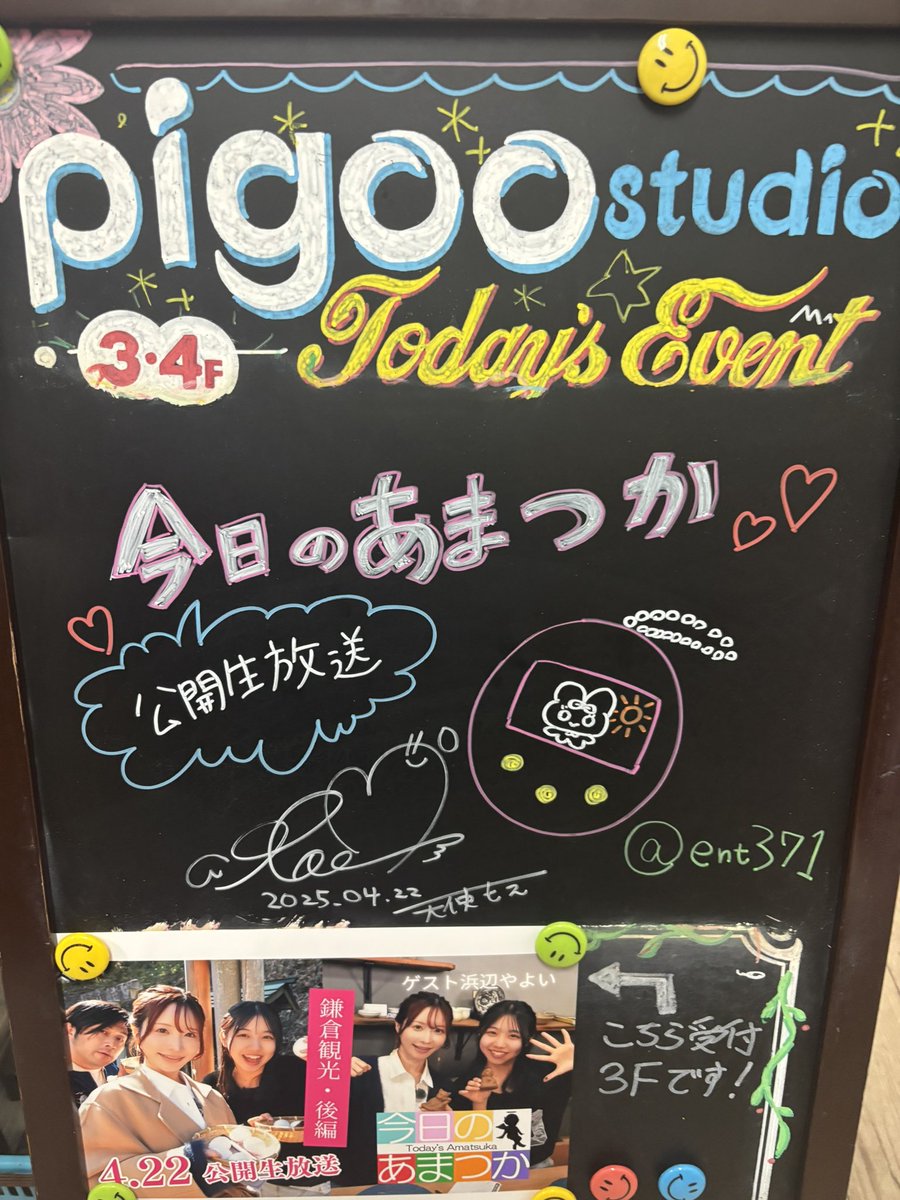 pigoo studio
3・4F
Today's Event
今日のあまつか
公開生放送
2025.04.22
天使もえ
@ent371
ゲスト浜辺やよい
鎌倉観光・後編
今日の
Today's Amatsuka
あまつか
4.22 公開生放送
こちら受付
3Fです!